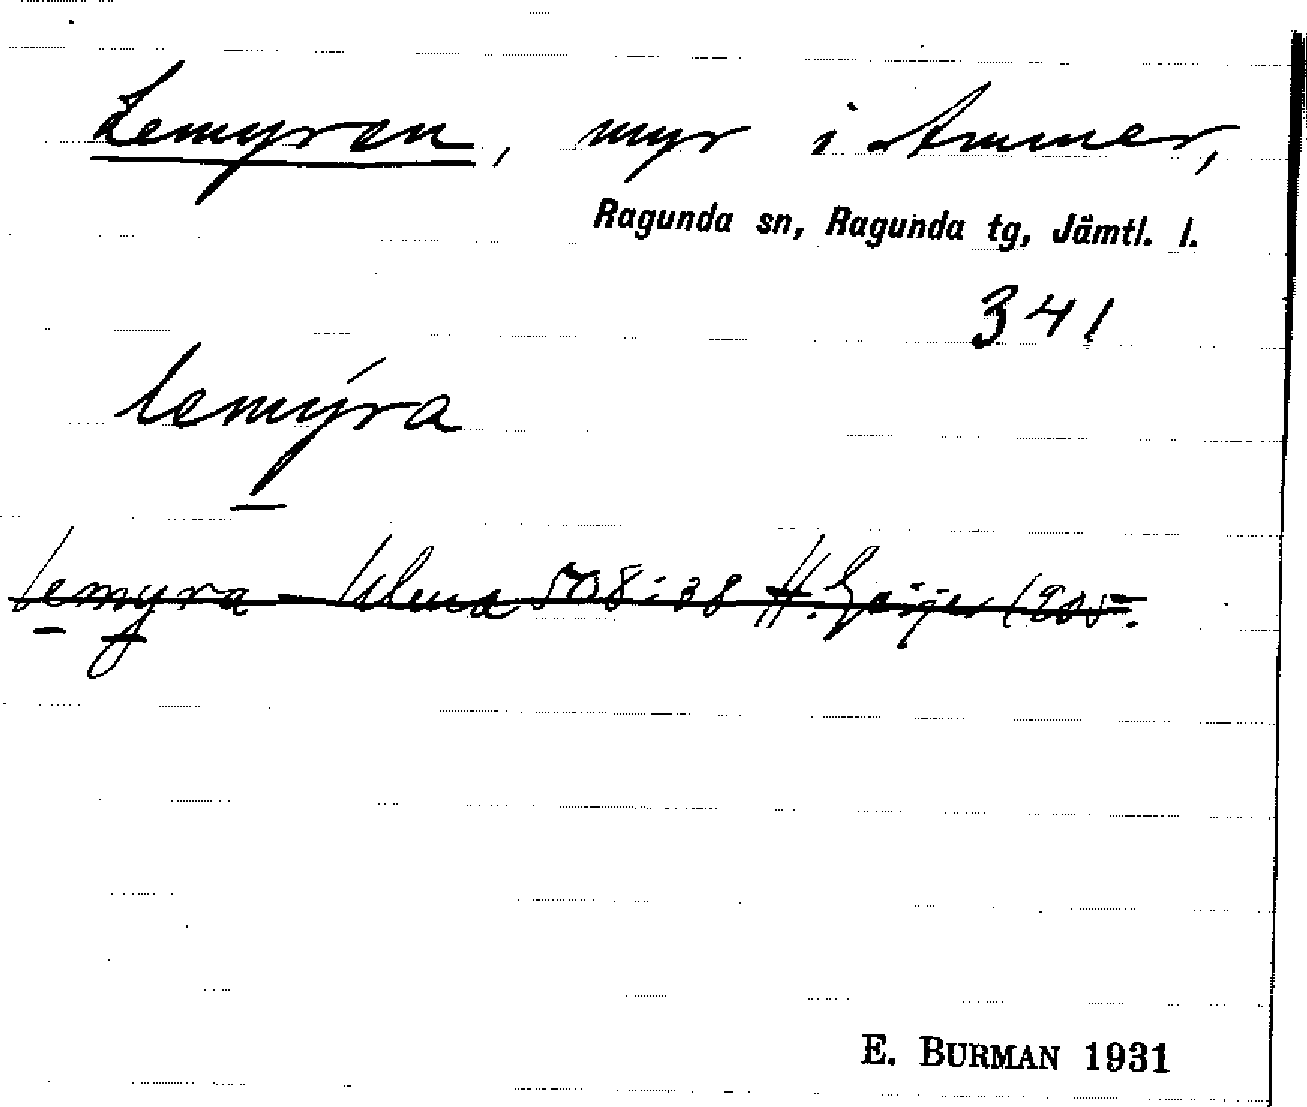 Lemyren, myr i Ammer,
Ragunda sn, Ragunda tg, Jämtl. l.
341
lemýra
lemyra - 508:38 H. Geijer 1905.
E. BURMAN 1931